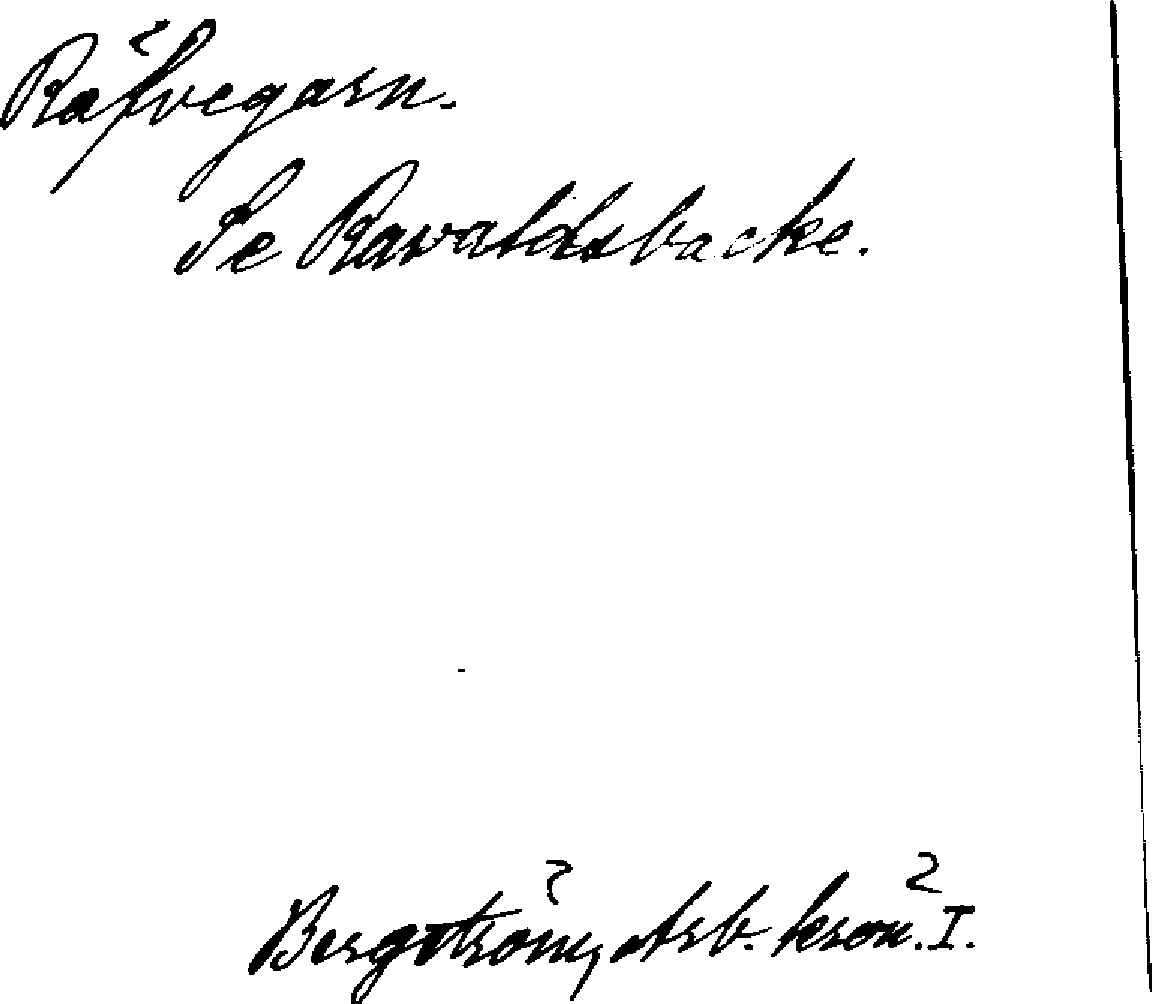 Räfvegarn.
Se Ravaldsbacke.
Bergström, Arb. krön. I.